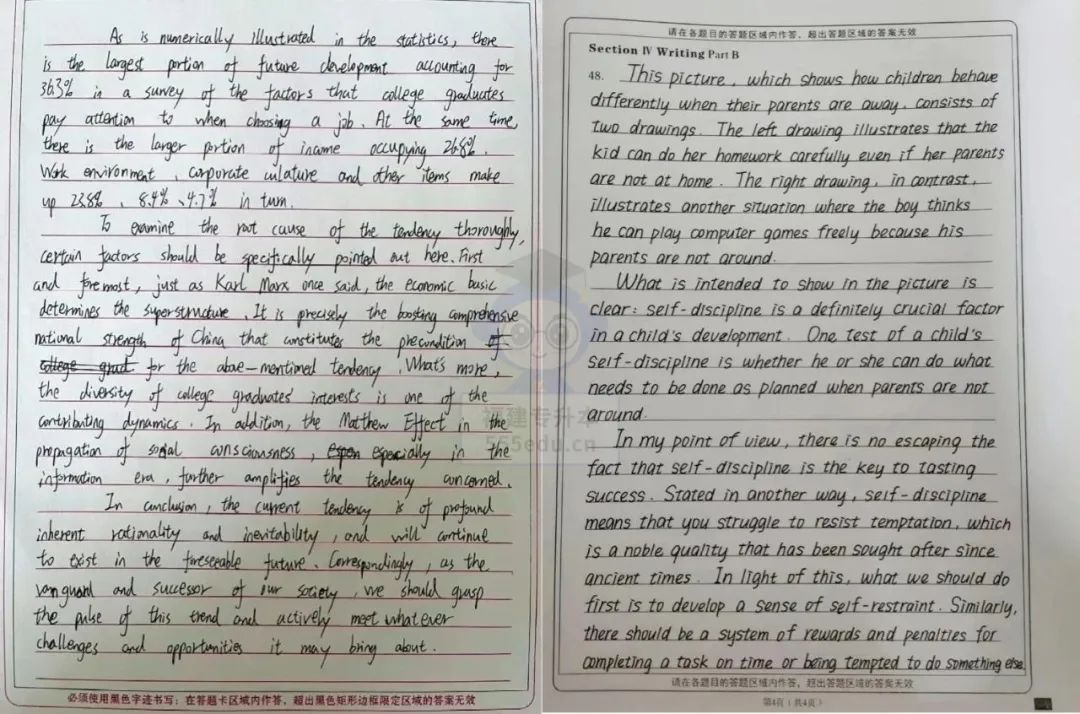 As is numerically illustrated in the statistics, there
is the largest portion of future development accounting for
36.3% in a survey of the factors that college graduates
pay attention to when choosing a job. At the same time,
there is the larger portion of income occupying 26.8%.
Work environment, corporate culature and other items make
up 23.8%、8.4%、4.7% in turn.
To examine the root cause of the tendency thoroughly,
certain factors should be specifically pointed out here. First
and foremost, just as Karl Marx once said, the economic basic
determines the superstructure. It is precisely the boosting comprehensive
national strength of China that constitutes the precondition of
college grad for the above-mentioned tendency. What's more,
the diversity of college graduates' interests is one of the
contributing dynamics. In addition, the Matthew Effect in the
propagation of social consciousness, especially in the
information era, further amplifies the tendency concerned.
In conclusion, the current tendency is of profound
inherent rationality and inevitability, and will continue
to exist in the foreseeable future. Correspondingly, as the
vanguard and successor of our society, we should grasp
the pulse of this trend and actively meet whatever
challenges and opportunities it may bring about.
必须使用黑色字迹书写；在答题卡区域内作答，超出黑色矩形边框限定区域的答案无效
请在各题目的答题区域内作答，超出答题区域的答案无效
Section IV Writing Part B
48. This picture, which shows how children behave
differently when their parents are away, consists of
two drawings. The left drawing illustrates that the
kid can do her homework carefully even if her parents
are not at home. The right drawing, in contrast,
illustrates another situation where the boy thinks
he can play computer games freely because his
parents are not around.
What is intended to show in the picture is
clear: self-discipline is a definitely crucial factor
in a child's development. One test of a child's
self-discipline is whether he or she can do what
needs to be done as planned when parents are not
around.
In my point of view, there is no escaping the
fact that self-discipline is the key to tasting
success. Stated in another way, self-discipline
means that you struggle to resist temptation, which
is a noble quality that has been sought after since
ancient times. In light of this, what we should do
first is to develop a sense of self-restraint. Similarly,
there should be a system of rewards and penalties for
completing a task on time or being tempted to do something else.
请在各题目的答题区域内作答，超出答题区域的答案无效
第4页（共4页）
福建专升本
565edu.cn